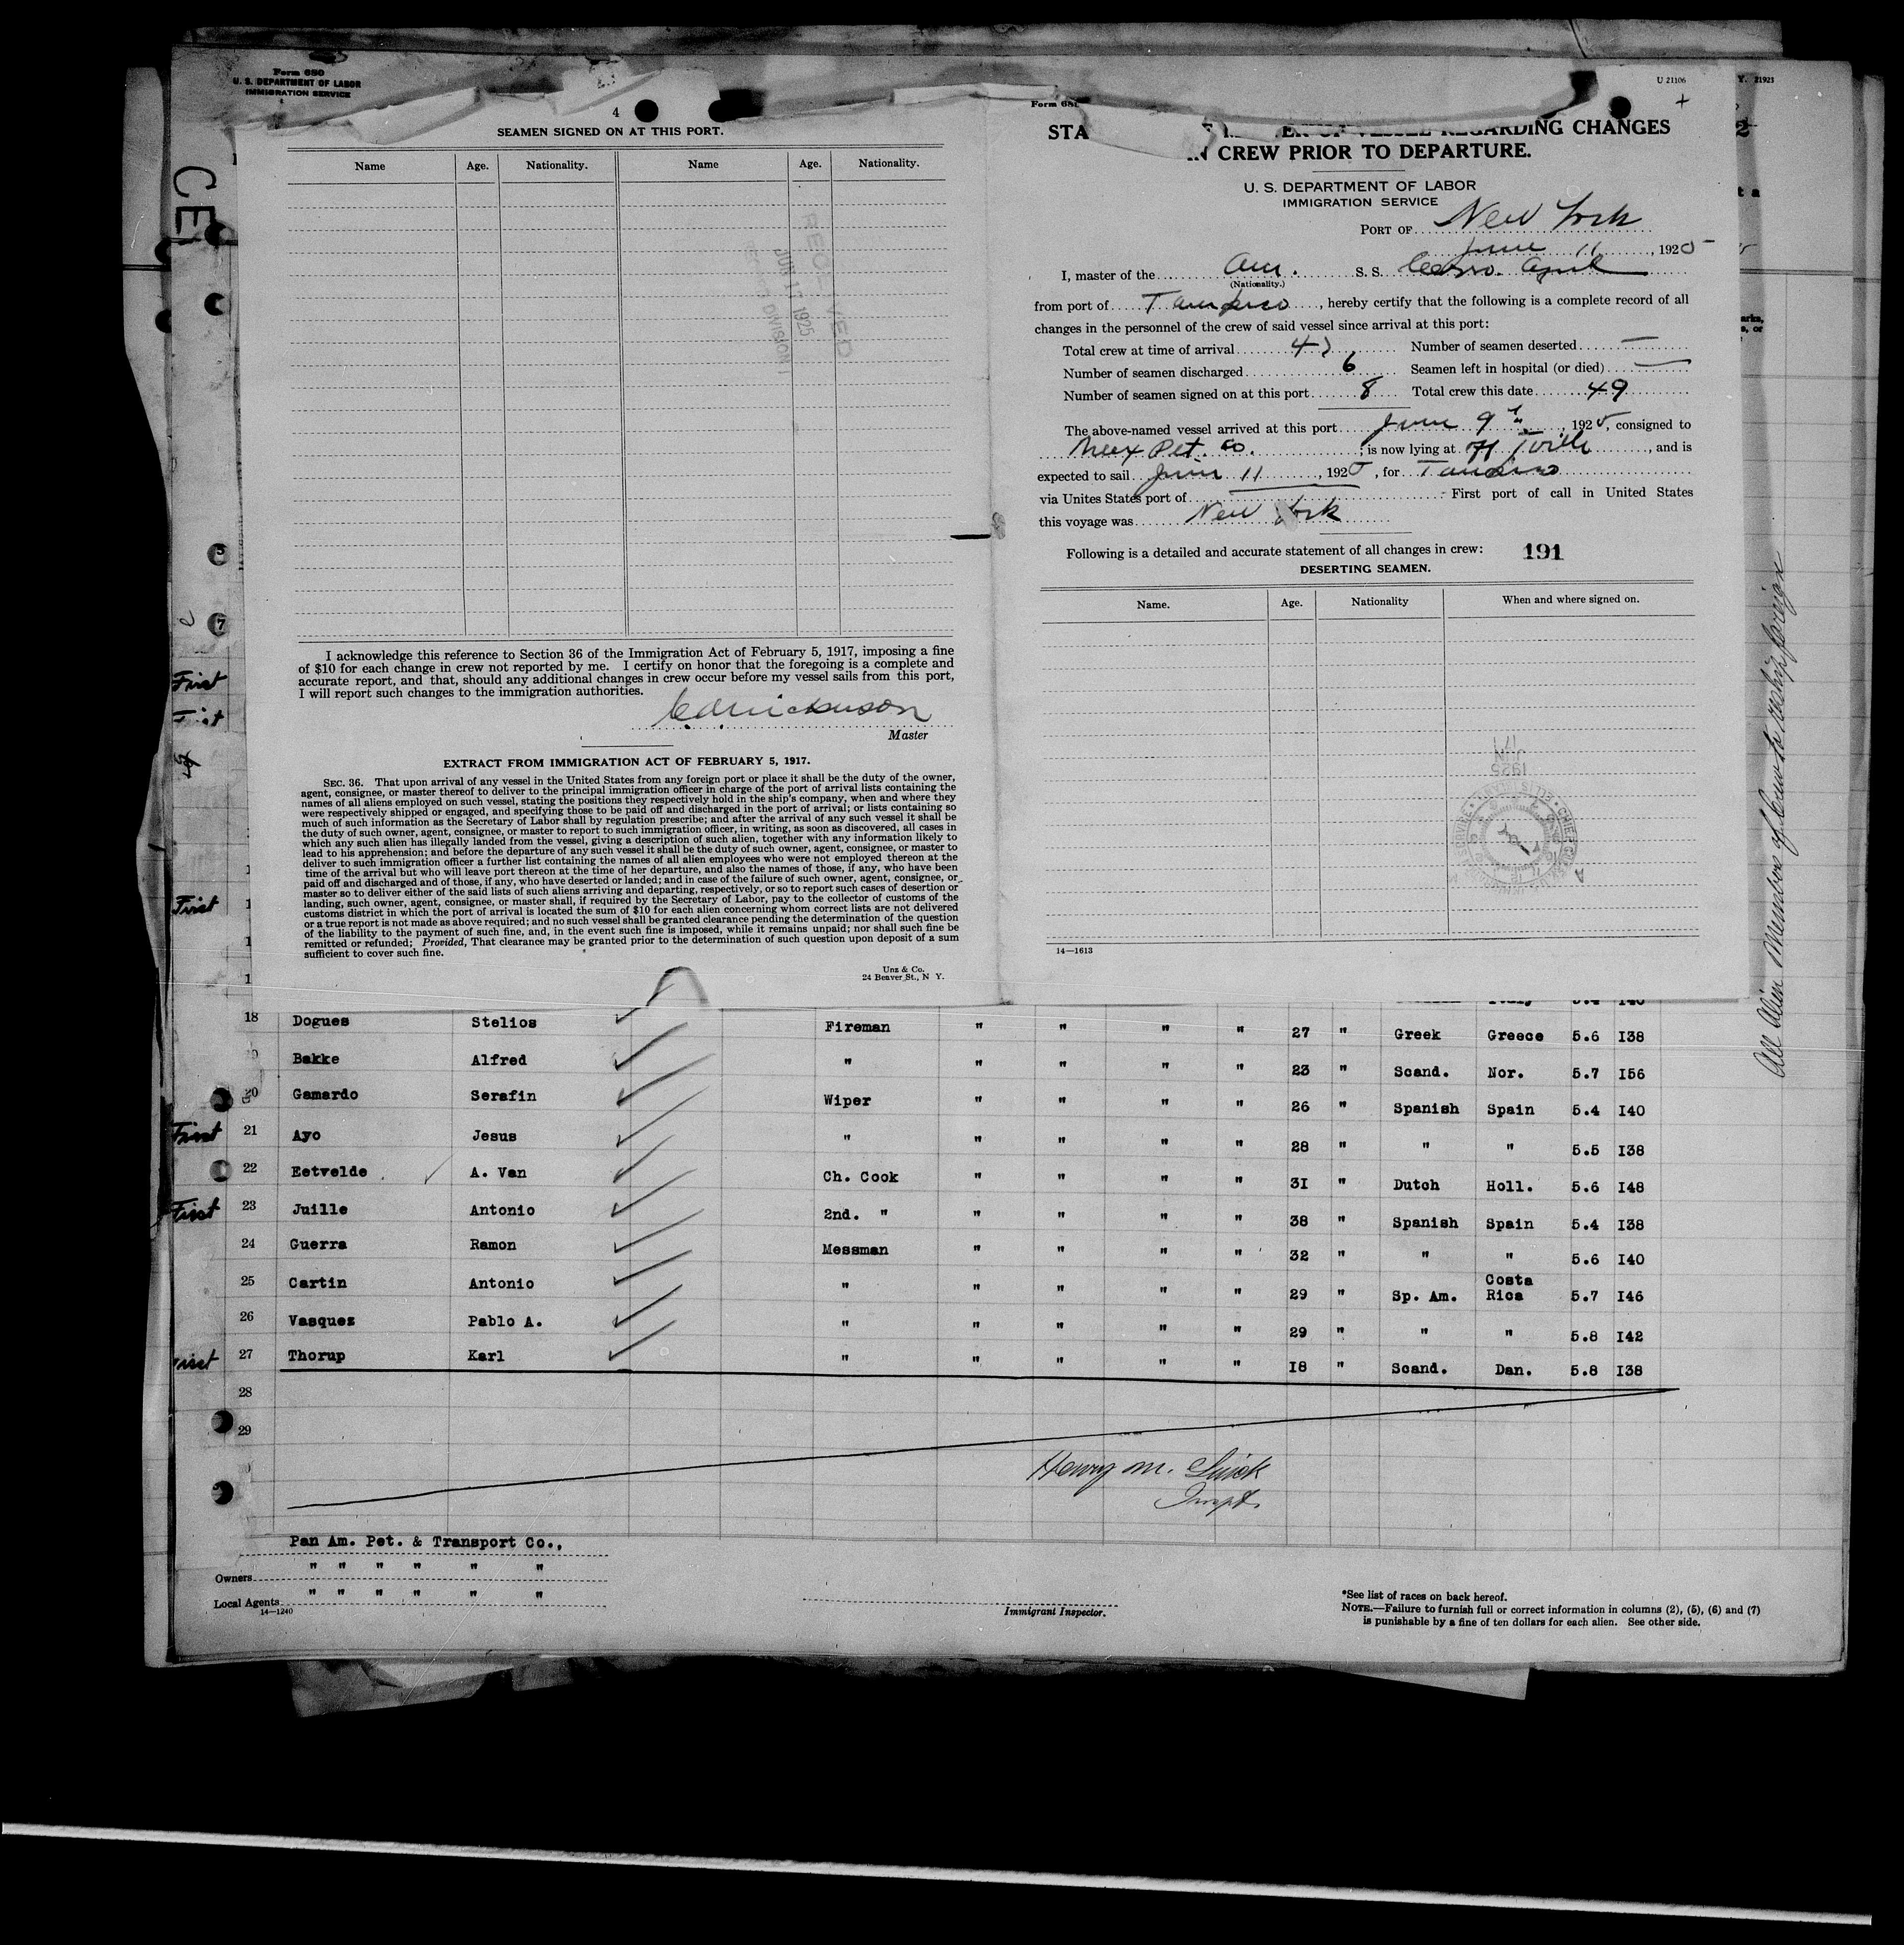 Form 680
U. S. DEPARTMENT OF LABOR
IMMIGRATION SERVICE
4
SEAMEN SIGNED ON AT THIS PORT.
Name Age. Nationality. Name Age. Nationality.
RECEIVED
JUN 17 1925
DIVISION
I acknowledge this reference to Section 36 of the Immigration Act of February 5, 1917, imposing a fine
of $10 for each change in crew not reported by me. I certify on honor that the foregoing is a complete and
accurate report, and that, should any additional changes in crew occur before my vessel sails from this port,
I will report such changes to the immigration authorities.
Master
EXTRACT FROM IMMIGRATION ACT OF FEBRUARY 5, 1917.
SEC. 36. That upon arrival of any vessel in the United States from any foreign port or place it shall be the duty of the owner,
agent, consignee, or master thereof to deliver to the principal immigration officer in charge of the port of arrival lists containing the
names of all aliens employed on such vessel, stating the positions they respectively hold in the ship's company, when and where they
were respectively shipped or engaged, and specifying those to be paid off and discharged in the port of arrival; or lists containing so
much of such information as the Secretary of Labor shall by regulation prescribe; and after the arrival of any such vessel it shall be
the duty of such owner, agent, consignee, or master to report to such immigration officer, in writing, as soon as discovered, all cases in
which any such alien has illegally landed from the vessel, giving a description of such alien, together with any information likely to
lead to his apprehension; and before the departure of any such vessel it shall be the duty of such owner, agent, consignee, or master to
deliver to such immigration officer a further list containing the names of all alien employees who were not employed thereon at the
time of the arrival but who will leave port thereon at the time of her departure, and also the names of those, if any, who have been
paid off and discharged and of those, if any, who have deserted or landed; and in case of the failure of such owner, agent, consignee, or
master so to deliver either of the said lists of such aliens arriving and departing, respectively, or so to report such cases of desertion or
landing, such owner, agent, consignee, or master shall, if required by the Secretary of Labor, pay to the collector of customs of the
customs district in which the port of arrival is located the sum of $10 for each alien concerning whom correct lists are not delivered
or a true report is not made as above required; and no such vessel shall be granted clearance pending the determination of the question
of the liability to the payment of such fine, and, in the event such fine is imposed, while it remains unpaid; nor shall such fine be
remitted or refunded; Provided, That clearance may be granted prior to the determination of such question upon deposit of a sum
sufficient to cover such fine.
Unz & Co.
24 Beaver St., N Y.
U 21106
Y. 21923
Form 681
STA VESSEL REGARDING CHANGES
IN CREW PRIOR TO DEPARTURE.
U. S. DEPARTMENT OF LABOR
IMMIGRATION SERVICE
PORT OF New York
June 11, 1925
I, master of the Am. S. S.
(Nationality.)
from port of Tampico, hereby certify that the following is a complete record of all
changes in the personnel of the crew of said vessel since arrival at this port:
Total crew at time of arrival 47 Number of seamen deserted —
Number of seamen discharged 6 Seamen left in hospital (or died) —
Number of seamen signed on at this port 8 Total crew this date 49
The above-named vessel arrived at this port June 9th, 1925, consigned to
Mex Pet. Co. ; is now lying at off Tville, and is
expected to sail June 11, 1925, for Tampico
via Unites States port of First port of call in United States
this voyage was New York
Following is a detailed and accurate statement of all changes in crew: 191
DESERTING SEAMEN.
Name. Age. Nationality When and where signed on.
1925
JUN
14—1613
All Alien Members of Crew to reship foreign
First
First
First
18 Dogues Stelios Fireman " " " " 27 " Greek Greece 5.6 I38
Bakke Alfred " " " " " 23 " Scand. Nor. 5.7 I56
20 Gamardo Serafin Wiper " " " " 26 " Spanish Spain 5.4 I40
First 21 Ayo Jesus " " " " " 28 " " " 5.5 I38
22 Eetvelde A. Van Ch. Cook " " " " 31 " Dutch Holl. 5.6 I48
First 23 Juille Antonio 2nd. " " " " " 38 " Spanish Spain 5.4 I38
24 Guerra Ramon Messman " " " " 32 " " " 5.6 I40
25 Cartin Antonio " " " " " 29 " Sp. Am. Costa Rica 5.7 I46
26 Vasquez Pablo A. " " " " " 29 " " " 5.8 I42
First 27 Thorup Karl " " " " " I8 " Scand. Dan. 5.8 I38
28
29
Henry M.
Inspt.
Pan Am. Pet. & Transport Co.,
Owners " " " " " "
Local Agents " " " " " "
14—1240
Immigrant Inspector.
*See list of races on back hereof.
NOTE.—Failure to furnish full or correct information in columns (2), (5), (6) and (7)
is punishable by a fine of ten dollars for each alien. See other side.